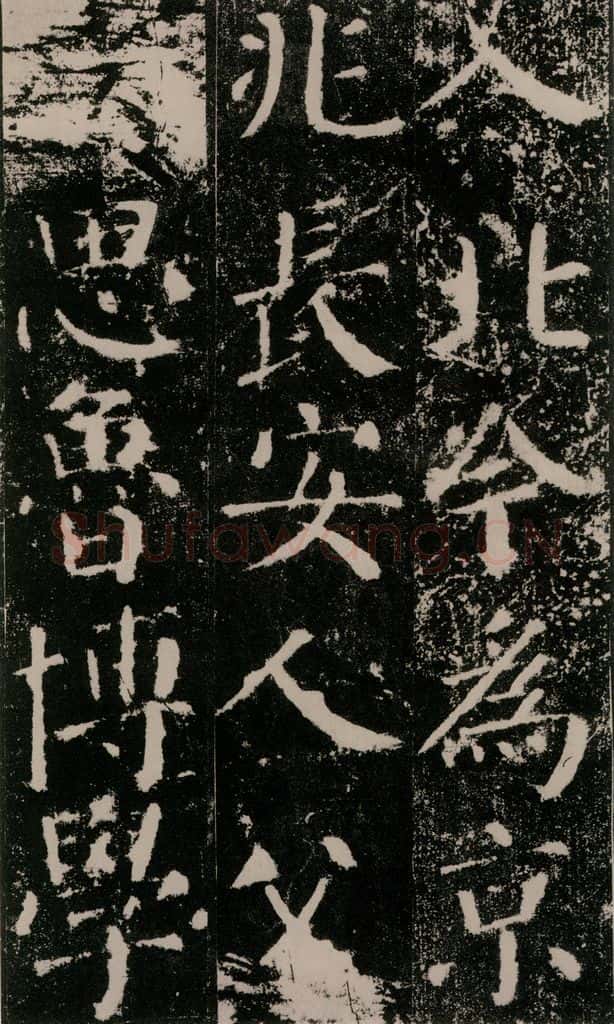 入北今為京
兆長安人父
思魯博學
Shufawang.CN